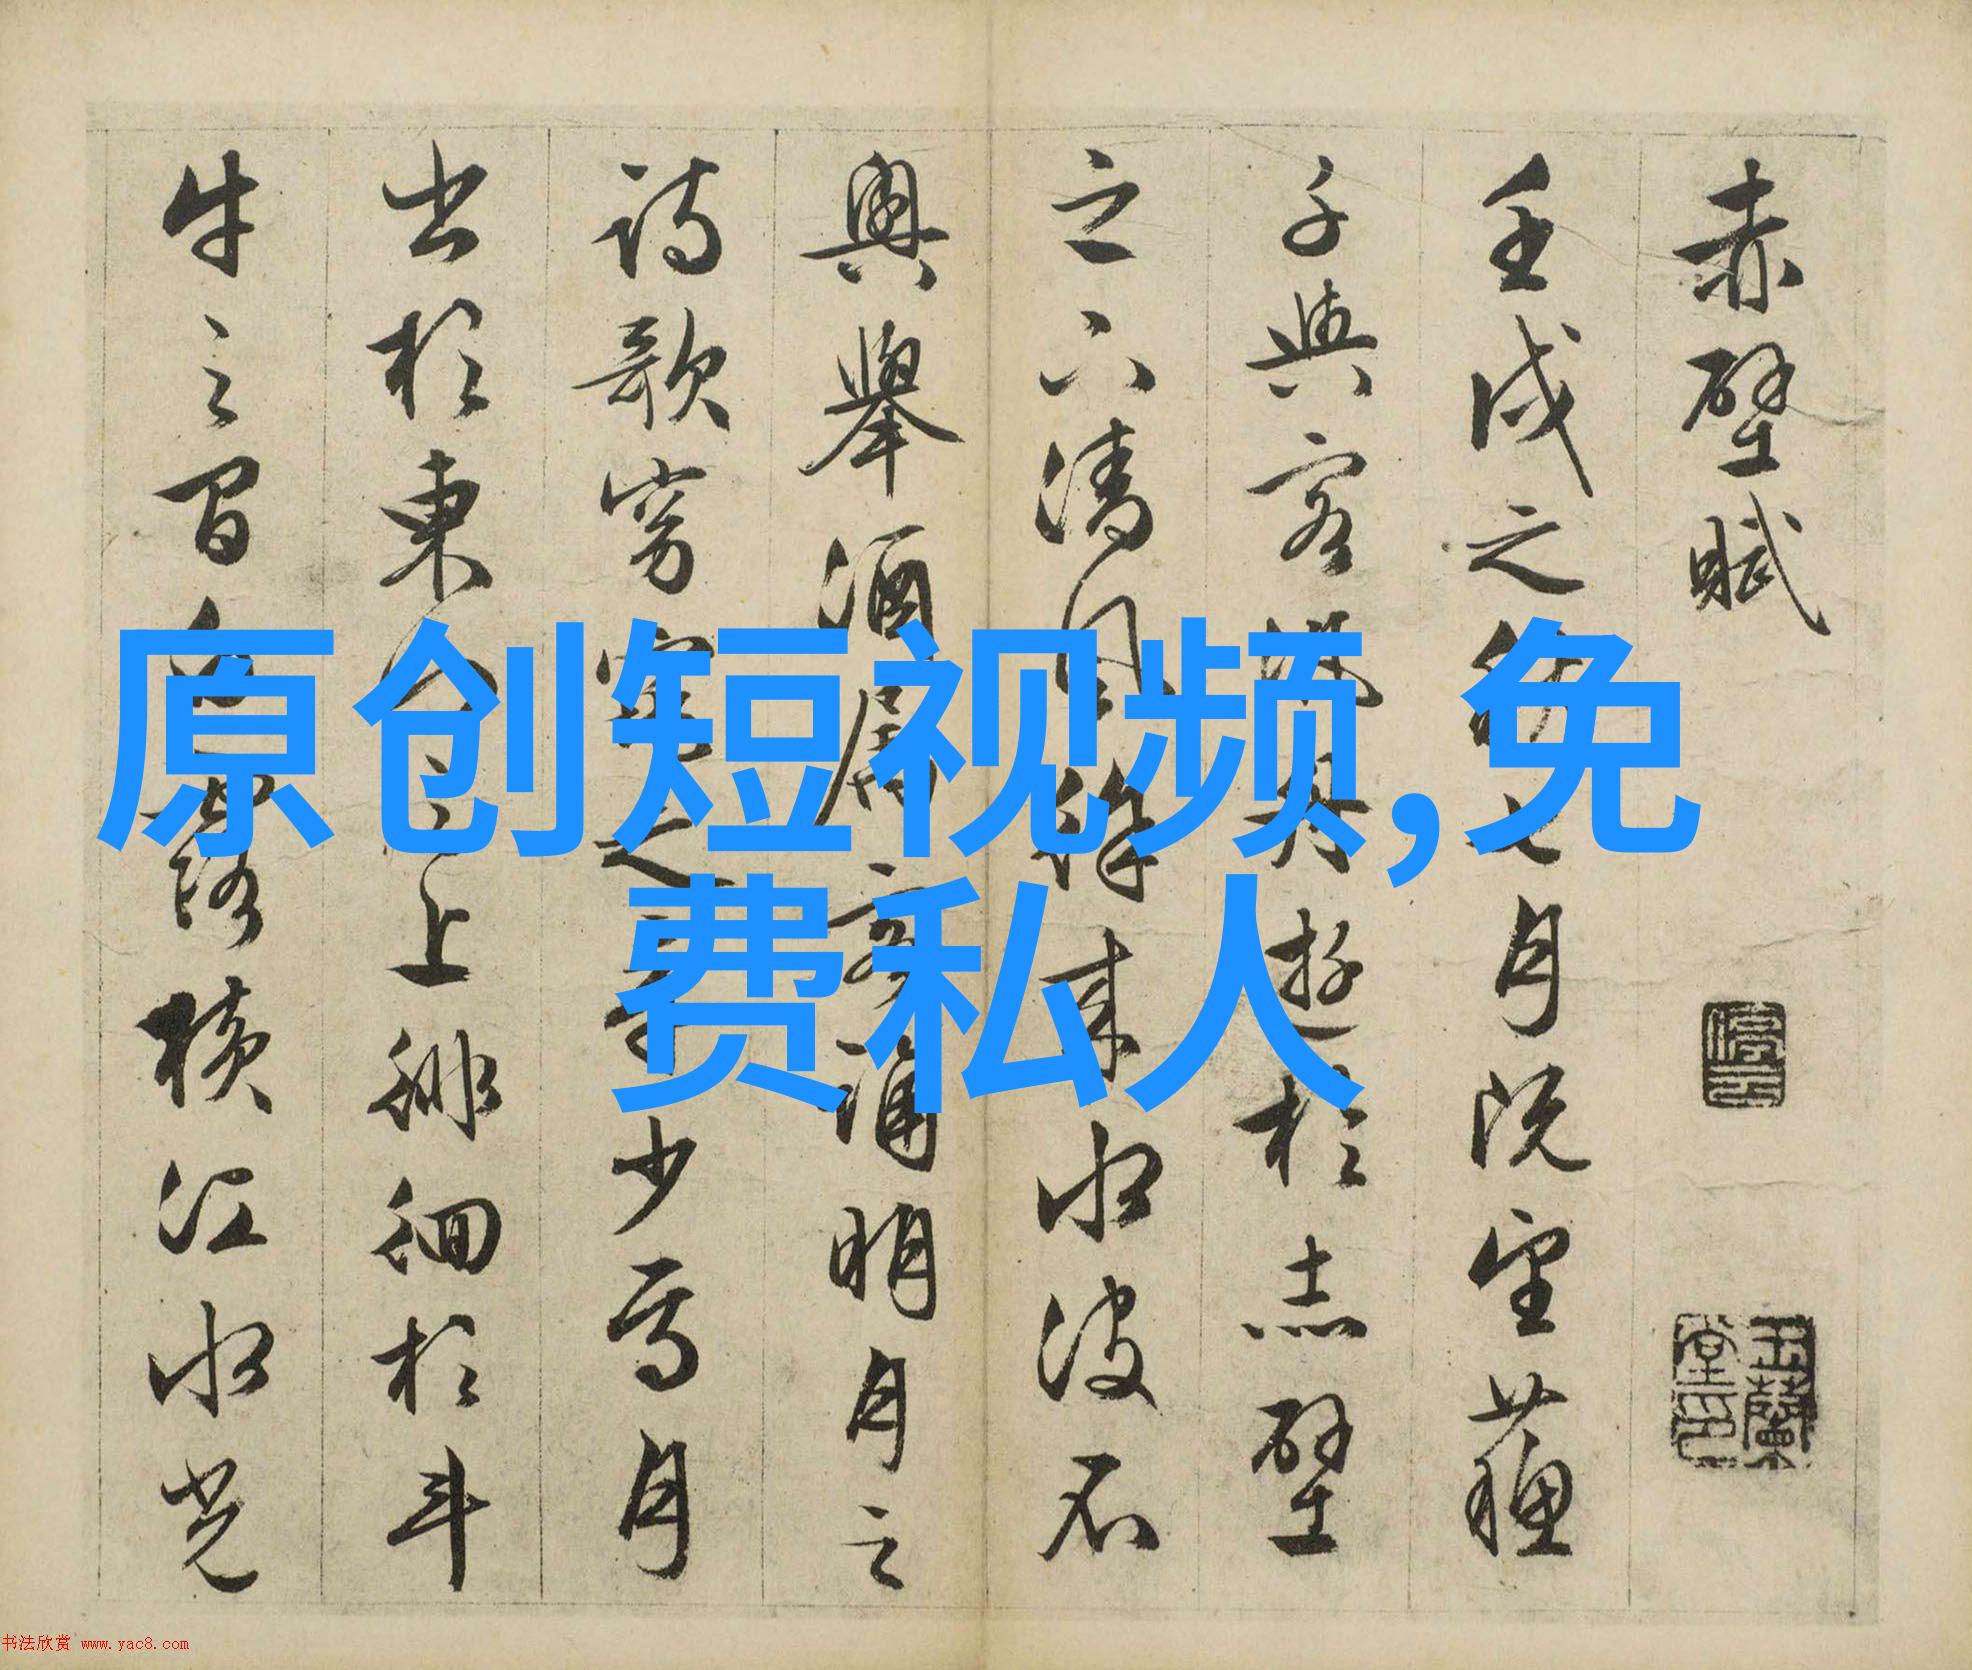 原创短视频,免
费私人
赤壁賦
壬戌之秋七月既望蘇
子與客泛舟遊於赤壁
之下清風徐來水波不
興舉酒屬客誦明月之
詩歌窈窕之章少焉月
出於東山之上徘徊於斗
牛之間白露橫江水光
玉蘭堂印
书法欣赏 www.yac8.com